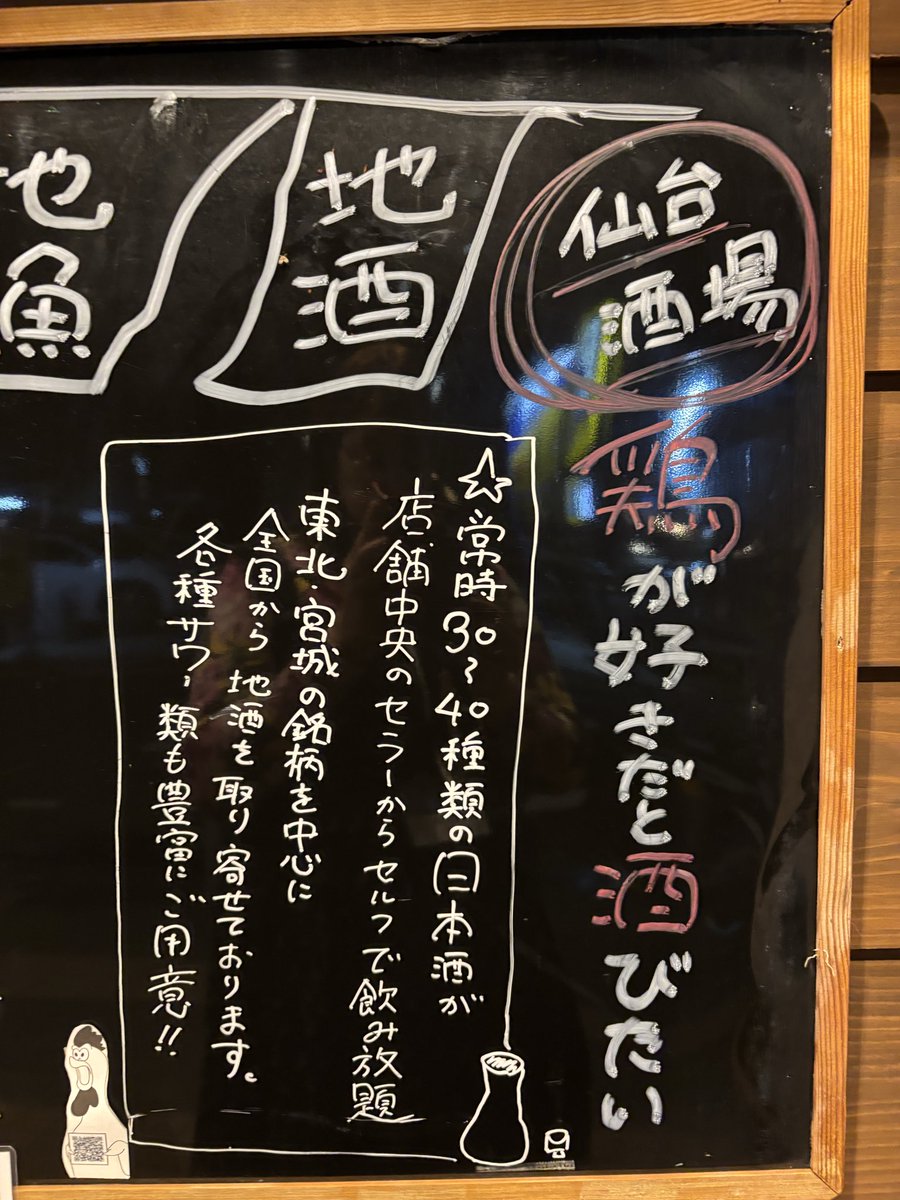 仙台
酒場
鶏が好きだと酒びたい
地酒
地魚
☆常時30〜40種類の日本酒が
店舗中央のセラーからセルフで飲み放題
東北・宮城の銘柄を中心に
全国から地酒を取り寄せております。
各種サワー類も豊富にご用意!!